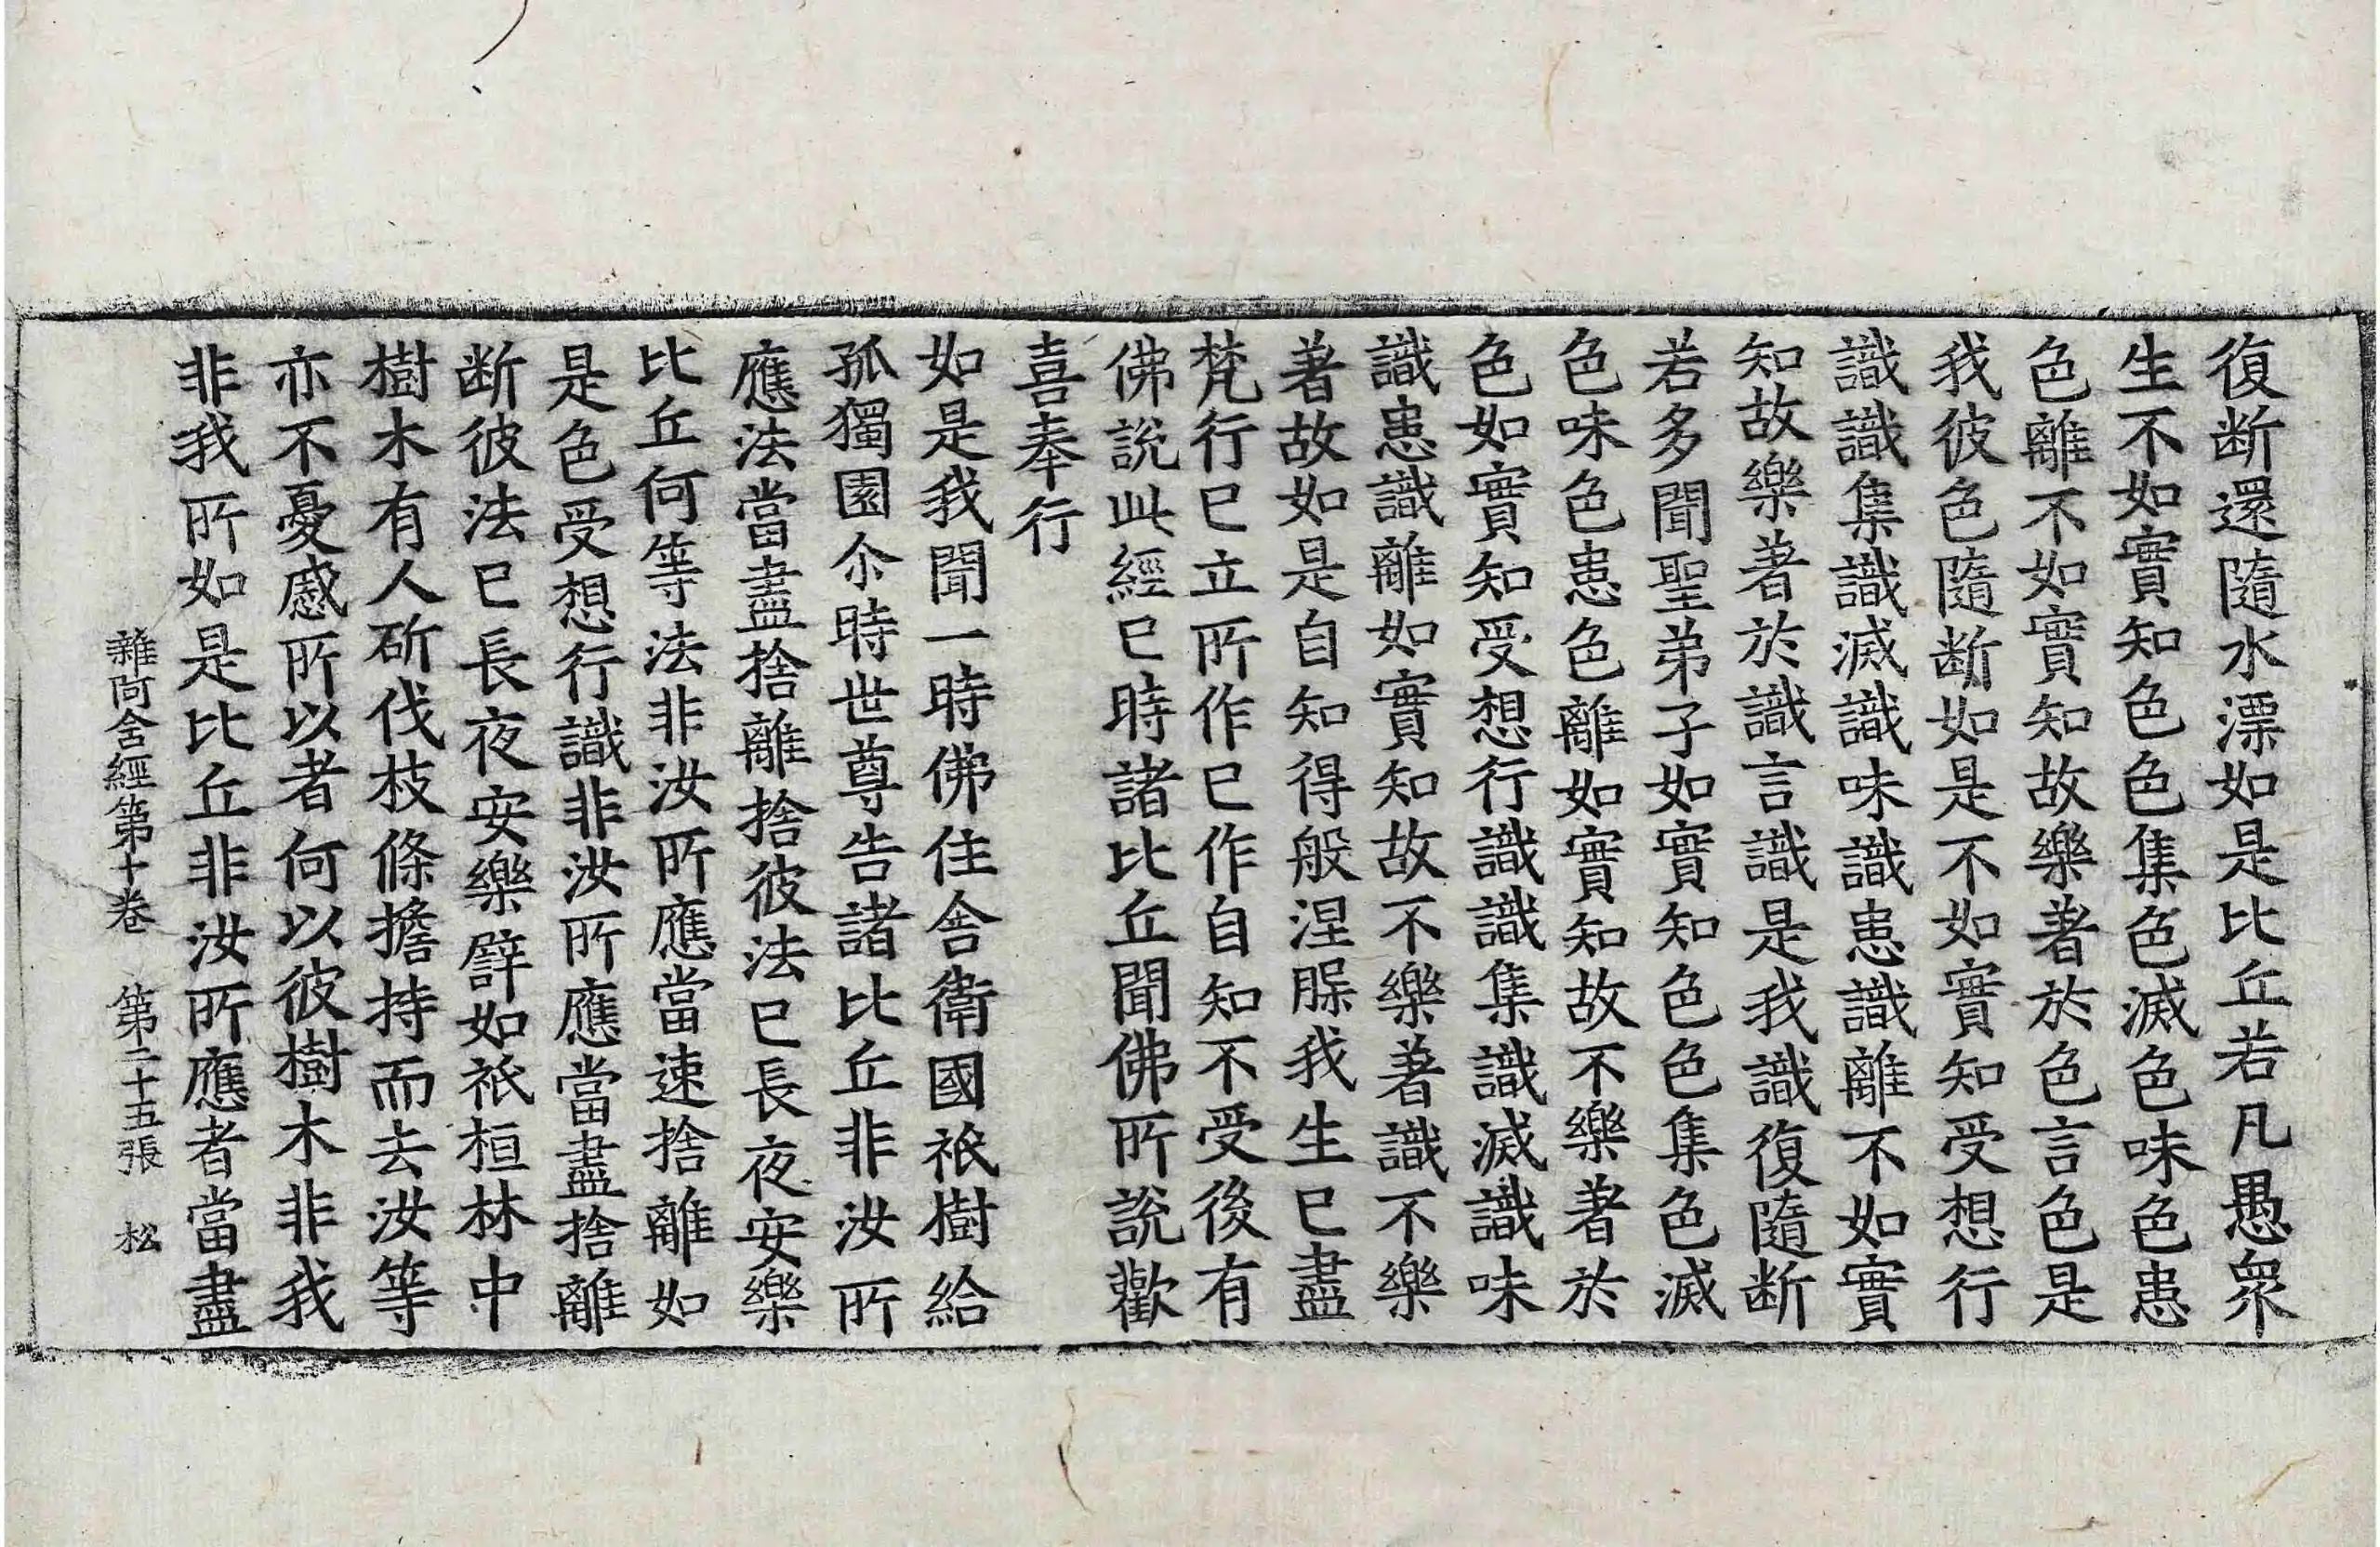 復断還隨水漂如是比丘若凡愚衆
生不如實知色色集色滅色味色患
色離不如實知故樂著於色言色是
我彼色隨断如是不如實知受想行
識識集識滅識味識患識離不如實
知故樂著於識言識是我識復隨断
若多聞聖弟子如實知色色集色滅
色味色患色離如實知故不樂著於
色如實知受想行識識集識滅識味
識患識離如實知故不樂著識不樂
著故如是自知得般涅槃我生已盡
梵行已立所作已作自知不受後有
佛說此經已時諸比丘聞佛所說歡
喜奉行
如是我聞一時佛住舍衛國祇樹給
孤獨園尒時世尊告諸比丘非汝所
應法當盡捨離捨彼法已長夜安樂
比丘何等法非汝所應當速捨離如
是色受想行識非汝所應當盡捨離
断彼法已長夜安樂譬如祇桓林中
樹木有人斫伐枝條擔持而去汝等
亦不憂慼所以者何以彼樹木非我
非我所如是比丘非汝所應者當盡
雜阿含經第十卷　第二十五張　松